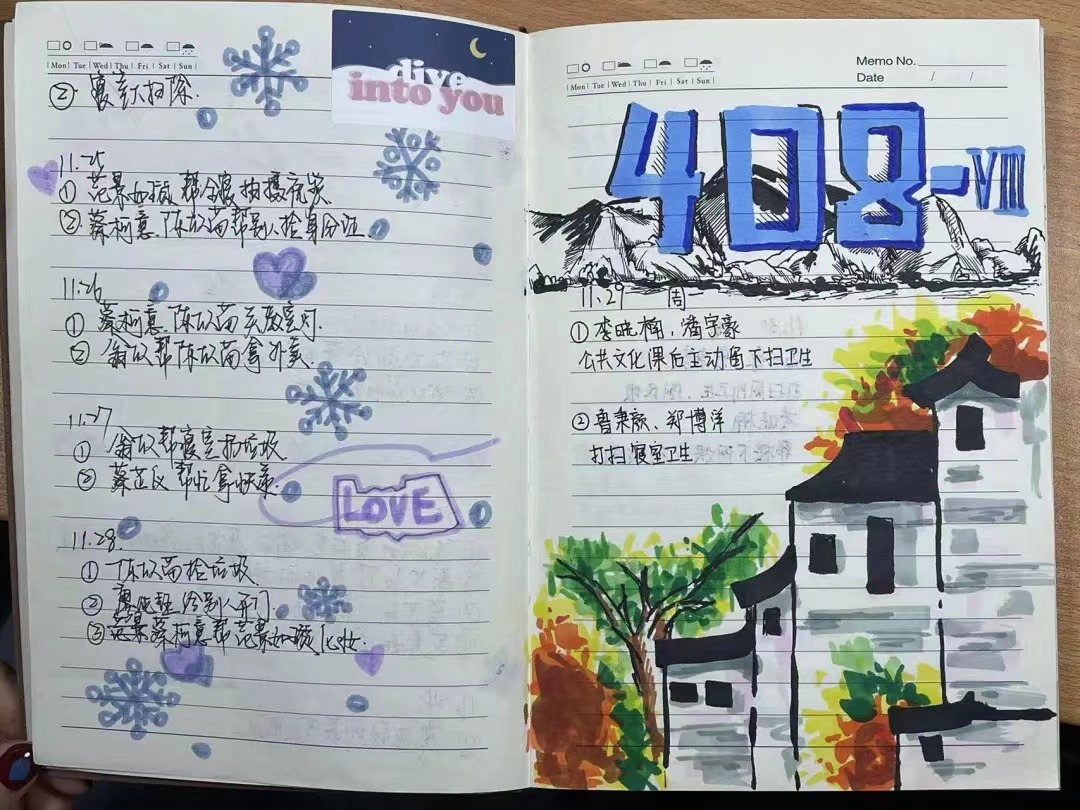 Mon Tue Wed Thu Fri Sat Sun
② 寝室大扫除.
dive
into you
11.25
① 范慕如 帮全寝拍摄
② 蔡柯意 陈以茜帮别人捡身份证.
11.26
① 蔡柯意 陈以茜关寝室灯.
② 翁以帮陈以茜拿外卖
11.27
① 翁以帮寝室扔垃圾
② 蔡芷仪 帮忙拿快递.
LOVE
11.28.
① 陈以茜捡垃圾.
② 给别人开门.
③ 蔡柯意帮范慕如 化妆.
Mon Tue Wed Thu Fri Sat Sun
Memo No.
Date / /
408-VIII
11.29 周一
① 李晓楠, 潘宇豪
公共文化课后主动留下扫卫生
② 鲁秉颜、郑博洋
打扫寝室卫生